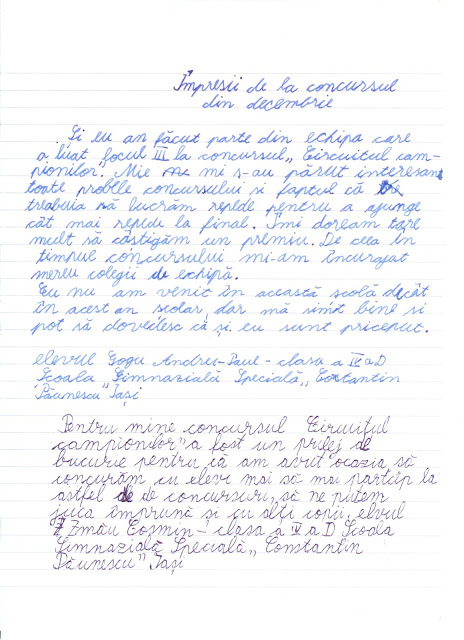 Impresii de la concursul
din decembrie
Și eu an făcut parte din echipa care
a luat „focul III la concursul „Circuitul cam-
pionilor". Mie mi s-au părut interesant
toate probele concursului si faptul că
trebuia să lucrăm repede pentru a ajunge
cât mai repede la final. Îmi doream tare
mult să câștigăm un premiu. De ceea în
timpul concursului mi-am încurajat
mereu colegii de echipă.
Eu nu am venit în această scolă decât
în acest an scolar, dar mă simt bine si
pot să dovedesc că și eu sunt priceput.
elevul Gogu Andrei-Paul - clasa a IV a D
Scoala „Gimnazială Specială„ Constantin
Păunescu" Iași
Pentru mine concursul Circuitul
campionilor" a fost un prilej de
bucurie pentru că am avut ocazia să
concurăm cu elevi mai să mai particip la
astfel de de concursuri, să ne putem
juca împrună si cu alți copii, elvul
Zmău Cosmin - clasa a V a D Scoala
Gimnazială Specială„ Constantin
Păunescu" Iași